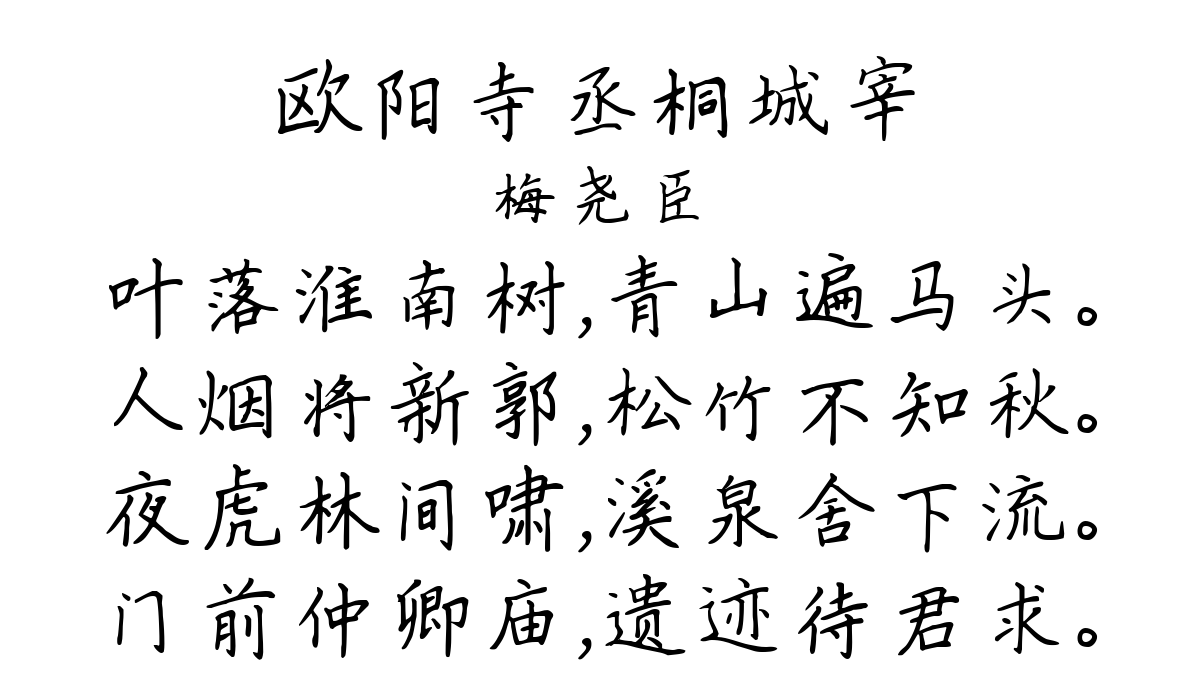 欧阳寺丞桐城宰
梅尧臣
叶落淮南树,青山遍马头。
人烟将新郭,松竹不知秋。
夜虎林间啸,溪泉舍下流。
门前仲卿庙,遗迹待君求。